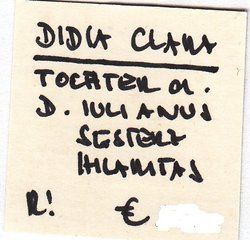 DIDIA CLARA
TOCHTER d.
D. IULIANUS
SESTERZ
HILARITAS
R! €